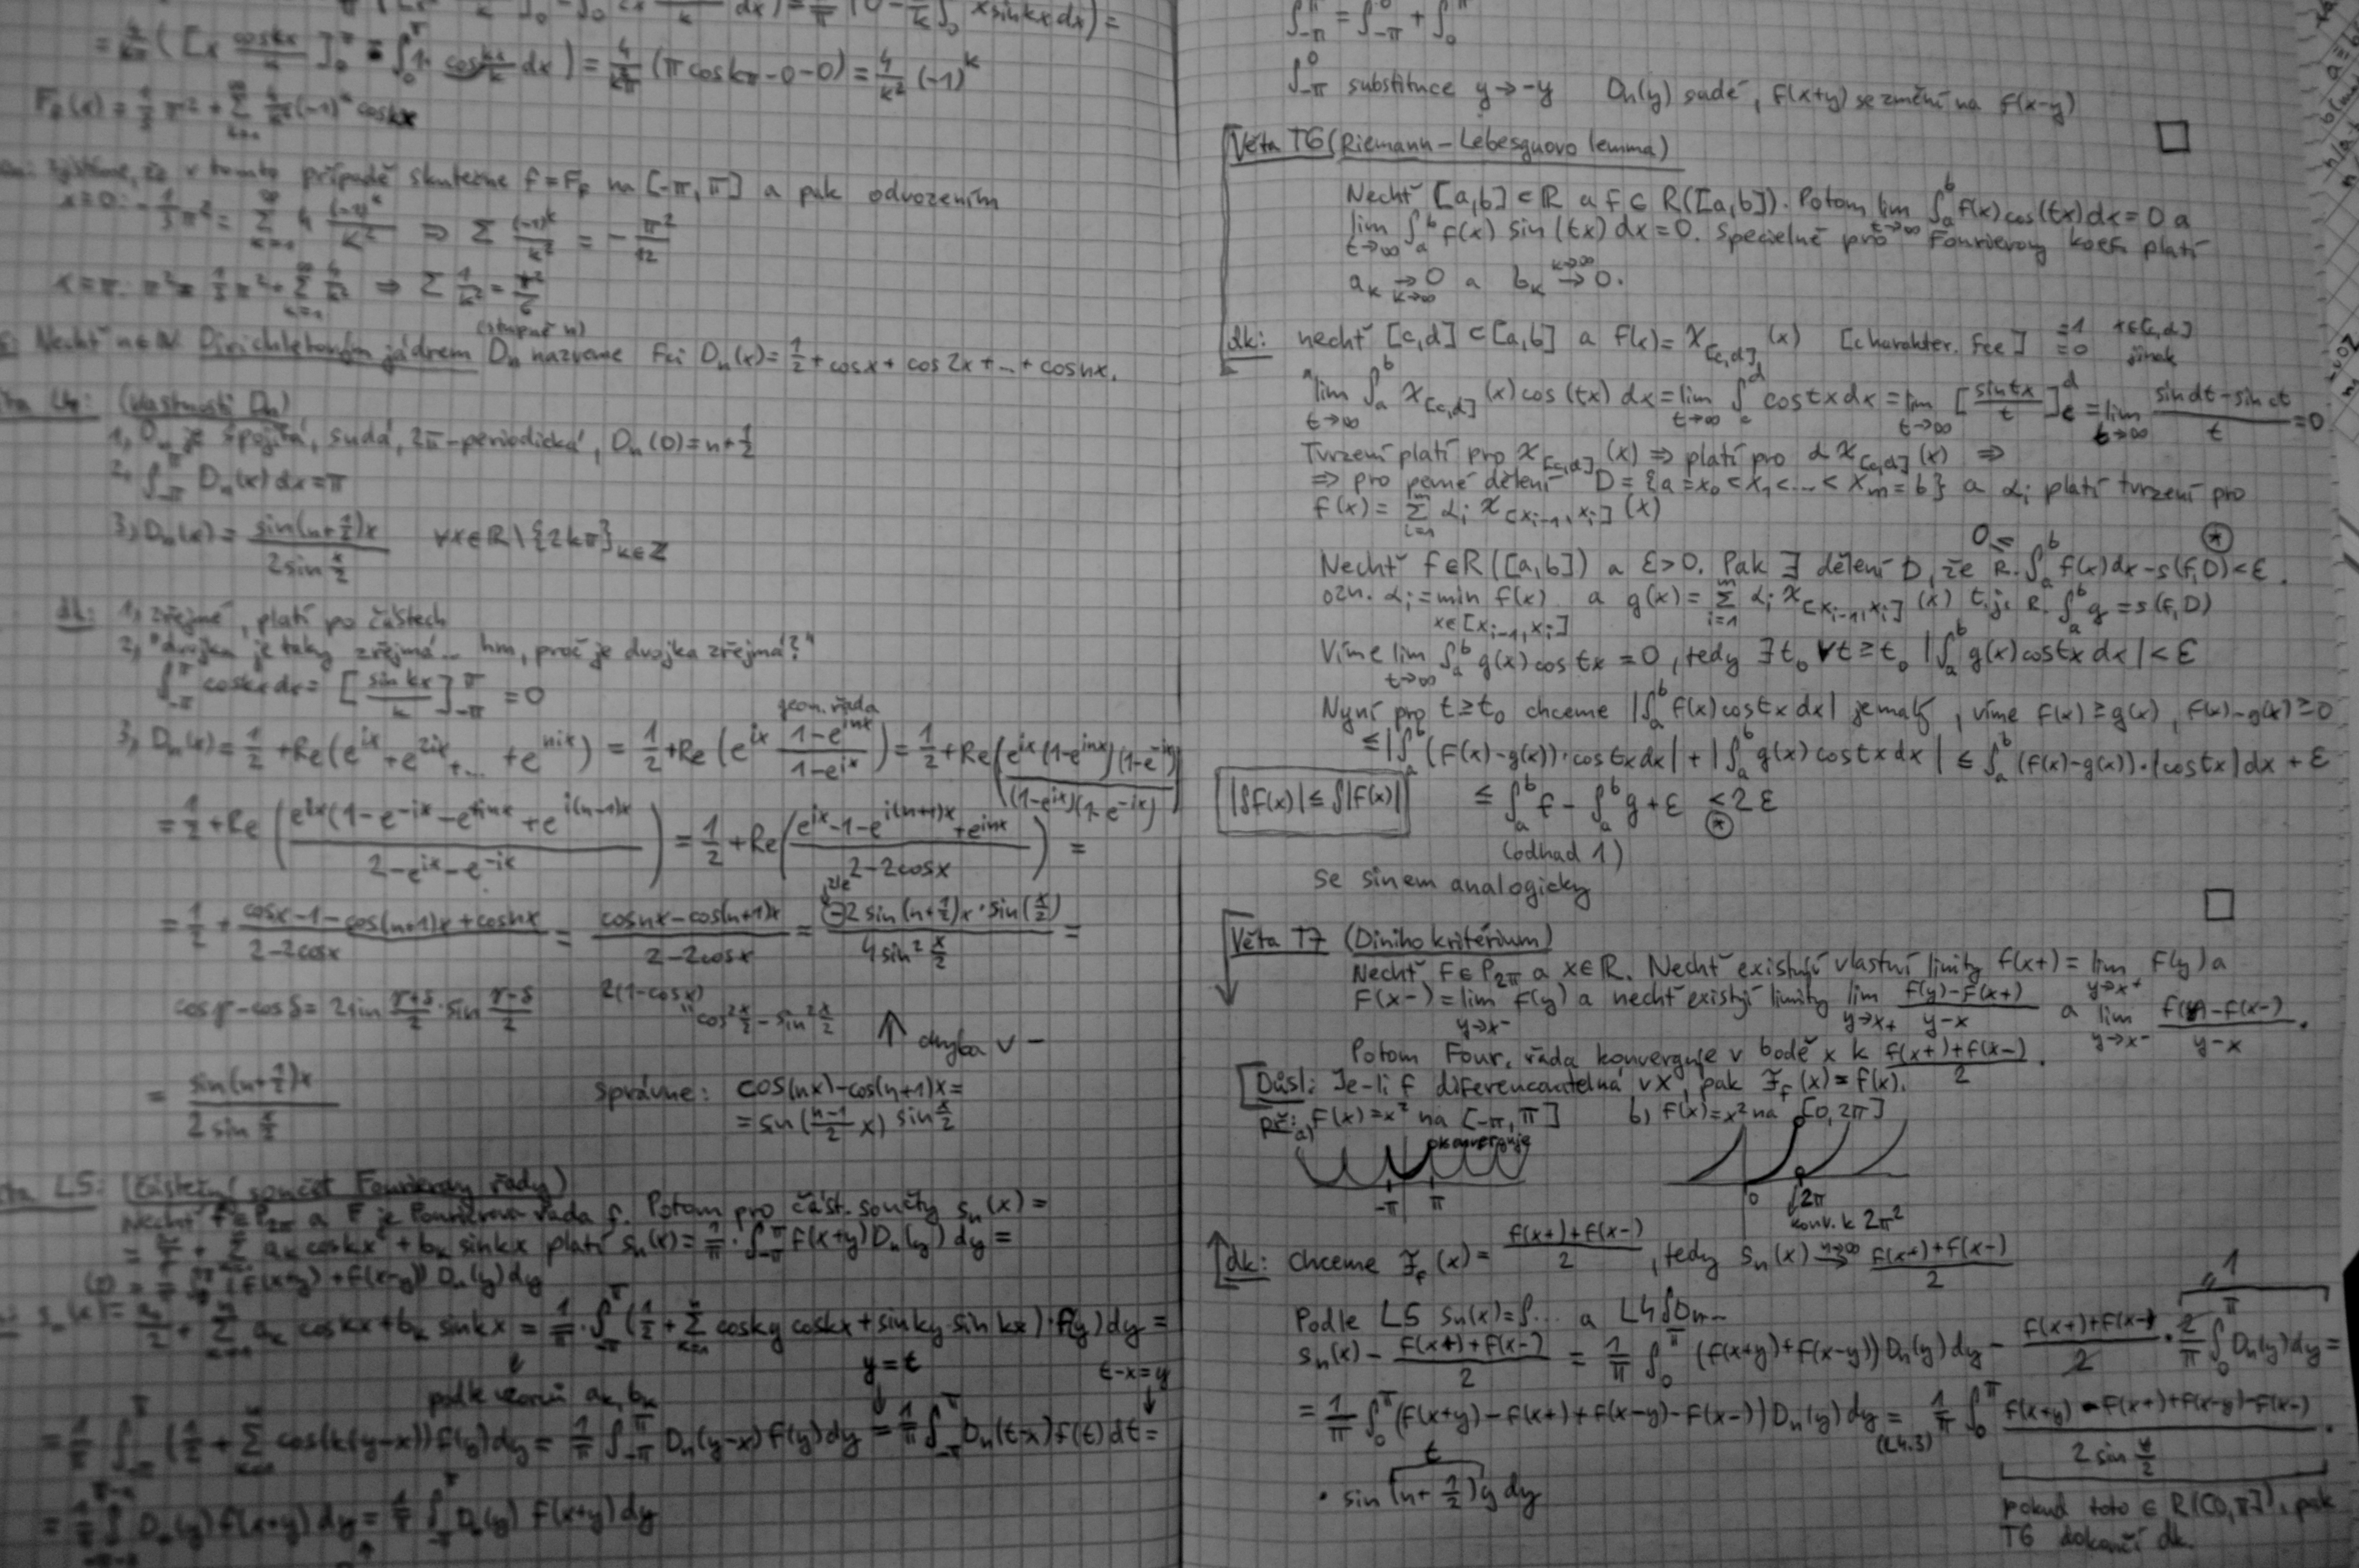 = ([x cos kx / k]₀^π - ∫₀^π 1· cos kx / k dx) = 4/(k²π) (π cos kπ - 0 - 0) = 4/k² (-1)^k
F_f(x) = 1/3 π² + Σ 4/k² (-1)^k cos kx
v tomto případě skutečně f = F_f na [-π, π] a pak odvozením
x=0: -1/3 π² = Σ_{k=1}^∞ 4 (-1)^k / k² ⇒ Σ (-1)^k / k² = - π²/12
x=π: π² = 1/3 π² + Σ_{k=1}^∞ 4/k² ⇒ Σ 1/k² = π²/6
(stupně n)
Nechť n∈ℕ. Dirichletovým jádrem D_n nazveme fci D_n(x) = 1/2 + cos x + cos 2x + … + cos nx.
L4: (vlastnosti D_n)
1, D_n je spojitá, sudá, 2π-periodická, D_n(0) = n+1/2
2, ∫_{-π}^π D_n(x) dx = π
3, D_n(x) = sin(n+1/2)x / 2 sin x/2 ∀x∈ℝ\{2kπ}_{k∈ℤ}
dk: 1, zřejmé, platí po částech
2, "dvojka je taky zřejmá... hm, proč je dvojka zřejmá?"
∫_{-π}^π cos kx dx = [sin kx / k]_{-π}^π = 0
geom. řada
3, D_n(x) = 1/2 + Re(e^{ix} + e^{2ix} + … + e^{nix}) = 1/2 + Re(e^{ix} (1-e^{inx})/(1-e^{ix})) = 1/2 + Re(e^{ix}(1-e^{inx})(1-e^{-ix}) / (1-e^{ix})(1-e^{-ix}))
= 1/2 + Re(e^{ix}(1-e^{-ix}-e^{inx}+e^{i(n-1)x}) / 2-e^{ix}-e^{-ix}) = 1/2 + Re(e^{ix}-1-e^{i(n+1)x}+e^{inx} / 2-2cos x) =
= 1/2 + cos x-1-cos(n+1)x+cos nx / 2-2cos x = cos nx - cos(n+1)x / 2-2cos x = ⊖2 sin(n+1/2)x · sin(x/2) / 4 sin² x/2 =
cos γ - cos δ = 2 sin (γ+δ)/2 · sin (γ-δ)/2 2(1-cos x) " cos² x/2 - sin² x/2 ↑ chyba v -
= sin(n+1/2)x / 2 sin x/2 správne: cos(nx) - cos(n+1)x =
= sin((n-1)/2 x) sin x/2
L5: (částečný součet Fourierovy řady)
Nechť f∈P_{2π} a F je Fourierova řada f. Potom pro část. součty s_n(x) =
= a₀/2 + Σ a_k cos kx + b_k sin kx platí s_n(x) = 1/π · ∫_{-π}^π f(x+y) D_n(y) dy =
= 1/π ∫₀^π (f(x+y) + f(x-y)) D_n(y) dy
s_n(x) = a₀/2 + Σ a_k cos kx + b_k sin kx = 1/π · ∫_{-π}^π (1/2 + Σ cos ky cos kx + sin ky sin kx) · f(y) dy =
podle vzorců a_k, b_k y=t t-x=y
= 1/π ∫_{-π}^π (1/2 + Σ cos(k(y-x))) f(y) dy = 1/π ∫_{-π}^π D_n(y-x) f(y) dy = 1/π ∫_{-π}^π D_n(t-x) f(t) dt =
= 1/π ∫ D_n(y) f(x+y) dy = 1/π ∫_{-π}^π D_n(y) f(x+y) dy
∫_{-π}^π = ∫_{-π}^0 + ∫_0^π
∫_{-π}^0 substituce y→-y D_n(y) sudé, f(x+y) se změní na f(x-y)
□
Věta T6 (Riemann-Lebesguovo lemma)
Nechť [a,b] ⊂ ℝ a f ∈ R([a,b]). Potom lim_{t→∞} ∫_a^b f(x) cos(tx) dx = 0 a
lim_{t→∞} ∫_a^b f(x) sin(tx) dx = 0. Specielně pro Fourierovy koef. platí
a_k →_{k→∞} 0 a b_k →^{k→∞} 0.
dk: nechť [c,d] ⊂ [a,b] a f(x) = χ_{[c,d]}(x) [charakter. fce] =1 x∈[c,d] =0 jinak
lim_{t→∞} ∫_a^b χ_{[c,d]}(x) cos(tx) dx = lim_{t→∞} ∫_c^d cos tx dx = lim_{t→∞} [sin tx / t]_c^d = lim_{t→∞} sin dt - sin ct / t = 0
Tvrzení platí pro χ_{[c,d]}(x) ⇒ platí pro αχ_{[c,d]}(x) ⇒
⇒ pro pevné dělení D = {a = x₀ < x₁ < … < x_m = b} a α_i platí tvrzení pro
f(x) = Σ_{i=1}^m α_i χ_{[x_{i-1}, x_i]}(x)
Nechť f∈R([a,b]) a ε>0. Pak ∃ dělení D, že 0 ≤ R.∫_a^b f(x) dx - s(f,D) < ε. ⊛
ozn. α_i := min_{x∈[x_{i-1}, x_i]} f(x) a g(x) = Σ_{i=1}^m α_i χ_{[x_{i-1}, x_i]}(x) t.j. R.∫_a^b g = s(f,D)
Víme lim_{t→∞} ∫_a^b g(x) cos tx = 0, tedy ∃t₀ ∀t≥t₀ |∫_a^b g(x) cos tx dx| < ε
Nyní pro t≥t₀ chceme |∫_a^b f(x) cos tx dx| je malý, víme f(x) ≥ g(x), f(x)-g(x) ≥ 0
≤ |∫_a^b (f(x)-g(x)) · cos tx dx| + |∫_a^b g(x) cos tx dx| ≤ ∫_a^b (f(x)-g(x)) · |cos tx| dx + ε
|∫f(x)| ≤ ∫|f(x)| ≤ ∫_a^b f - ∫_a^b g + ε <_⊛ 2ε
(odhad 1)
se sinem analogicky
□
Věta T7 (Diniho kritérium)
Nechť f∈P_{2π} a x∈ℝ. Nechť existují vlastní limity f(x+) = lim_{y→x+} f(y) a
f(x-) = lim_{y→x-} f(y) a nechť existují limity lim_{y→x+} f(y)-f(x+) / y-x a lim_{y→x-} f(y)-f(x-) / y-x.
Potom Four. řada konverguje v bodě x k f(x+)+f(x-) / 2.
Důsl: Je-li f diferencovatelná v x, pak F_f(x) = f(x).
př: a) f(x) = x² na [-π, π] b) f(x) = x² na [0, 2π]
ok konverguje
-π π 0 2π
konv. k 2π²
dk: Chceme F_f(x) = f(x+)+f(x-) / 2, tedy s_n(x) →^{n→∞} f(x+)+f(x-) / 2
Podle L5 s_n(x) = ∫… a L4 ∫D_n… 1
s_n(x) - f(x+)+f(x-) / 2 = 1/π ∫₀^π (f(x+y)+f(x-y)) D_n(y) dy - f(x+)+f(x-) / 2 · 2/π ∫₀^π D_n(y) dy =
= 1/π ∫₀^π (f(x+y)-f(x+)+f(x-y)-f(x-)) D_n(y) dy =_{(L4.3)} 1/π ∫₀^π f(x+y)-f(x+)+f(x-y)-f(x-) / 2 sin y/2 ·
t
· sin(n+1/2)y dy
pokud toto ∈ R([0,π]), pak
T6 dokončí dk.